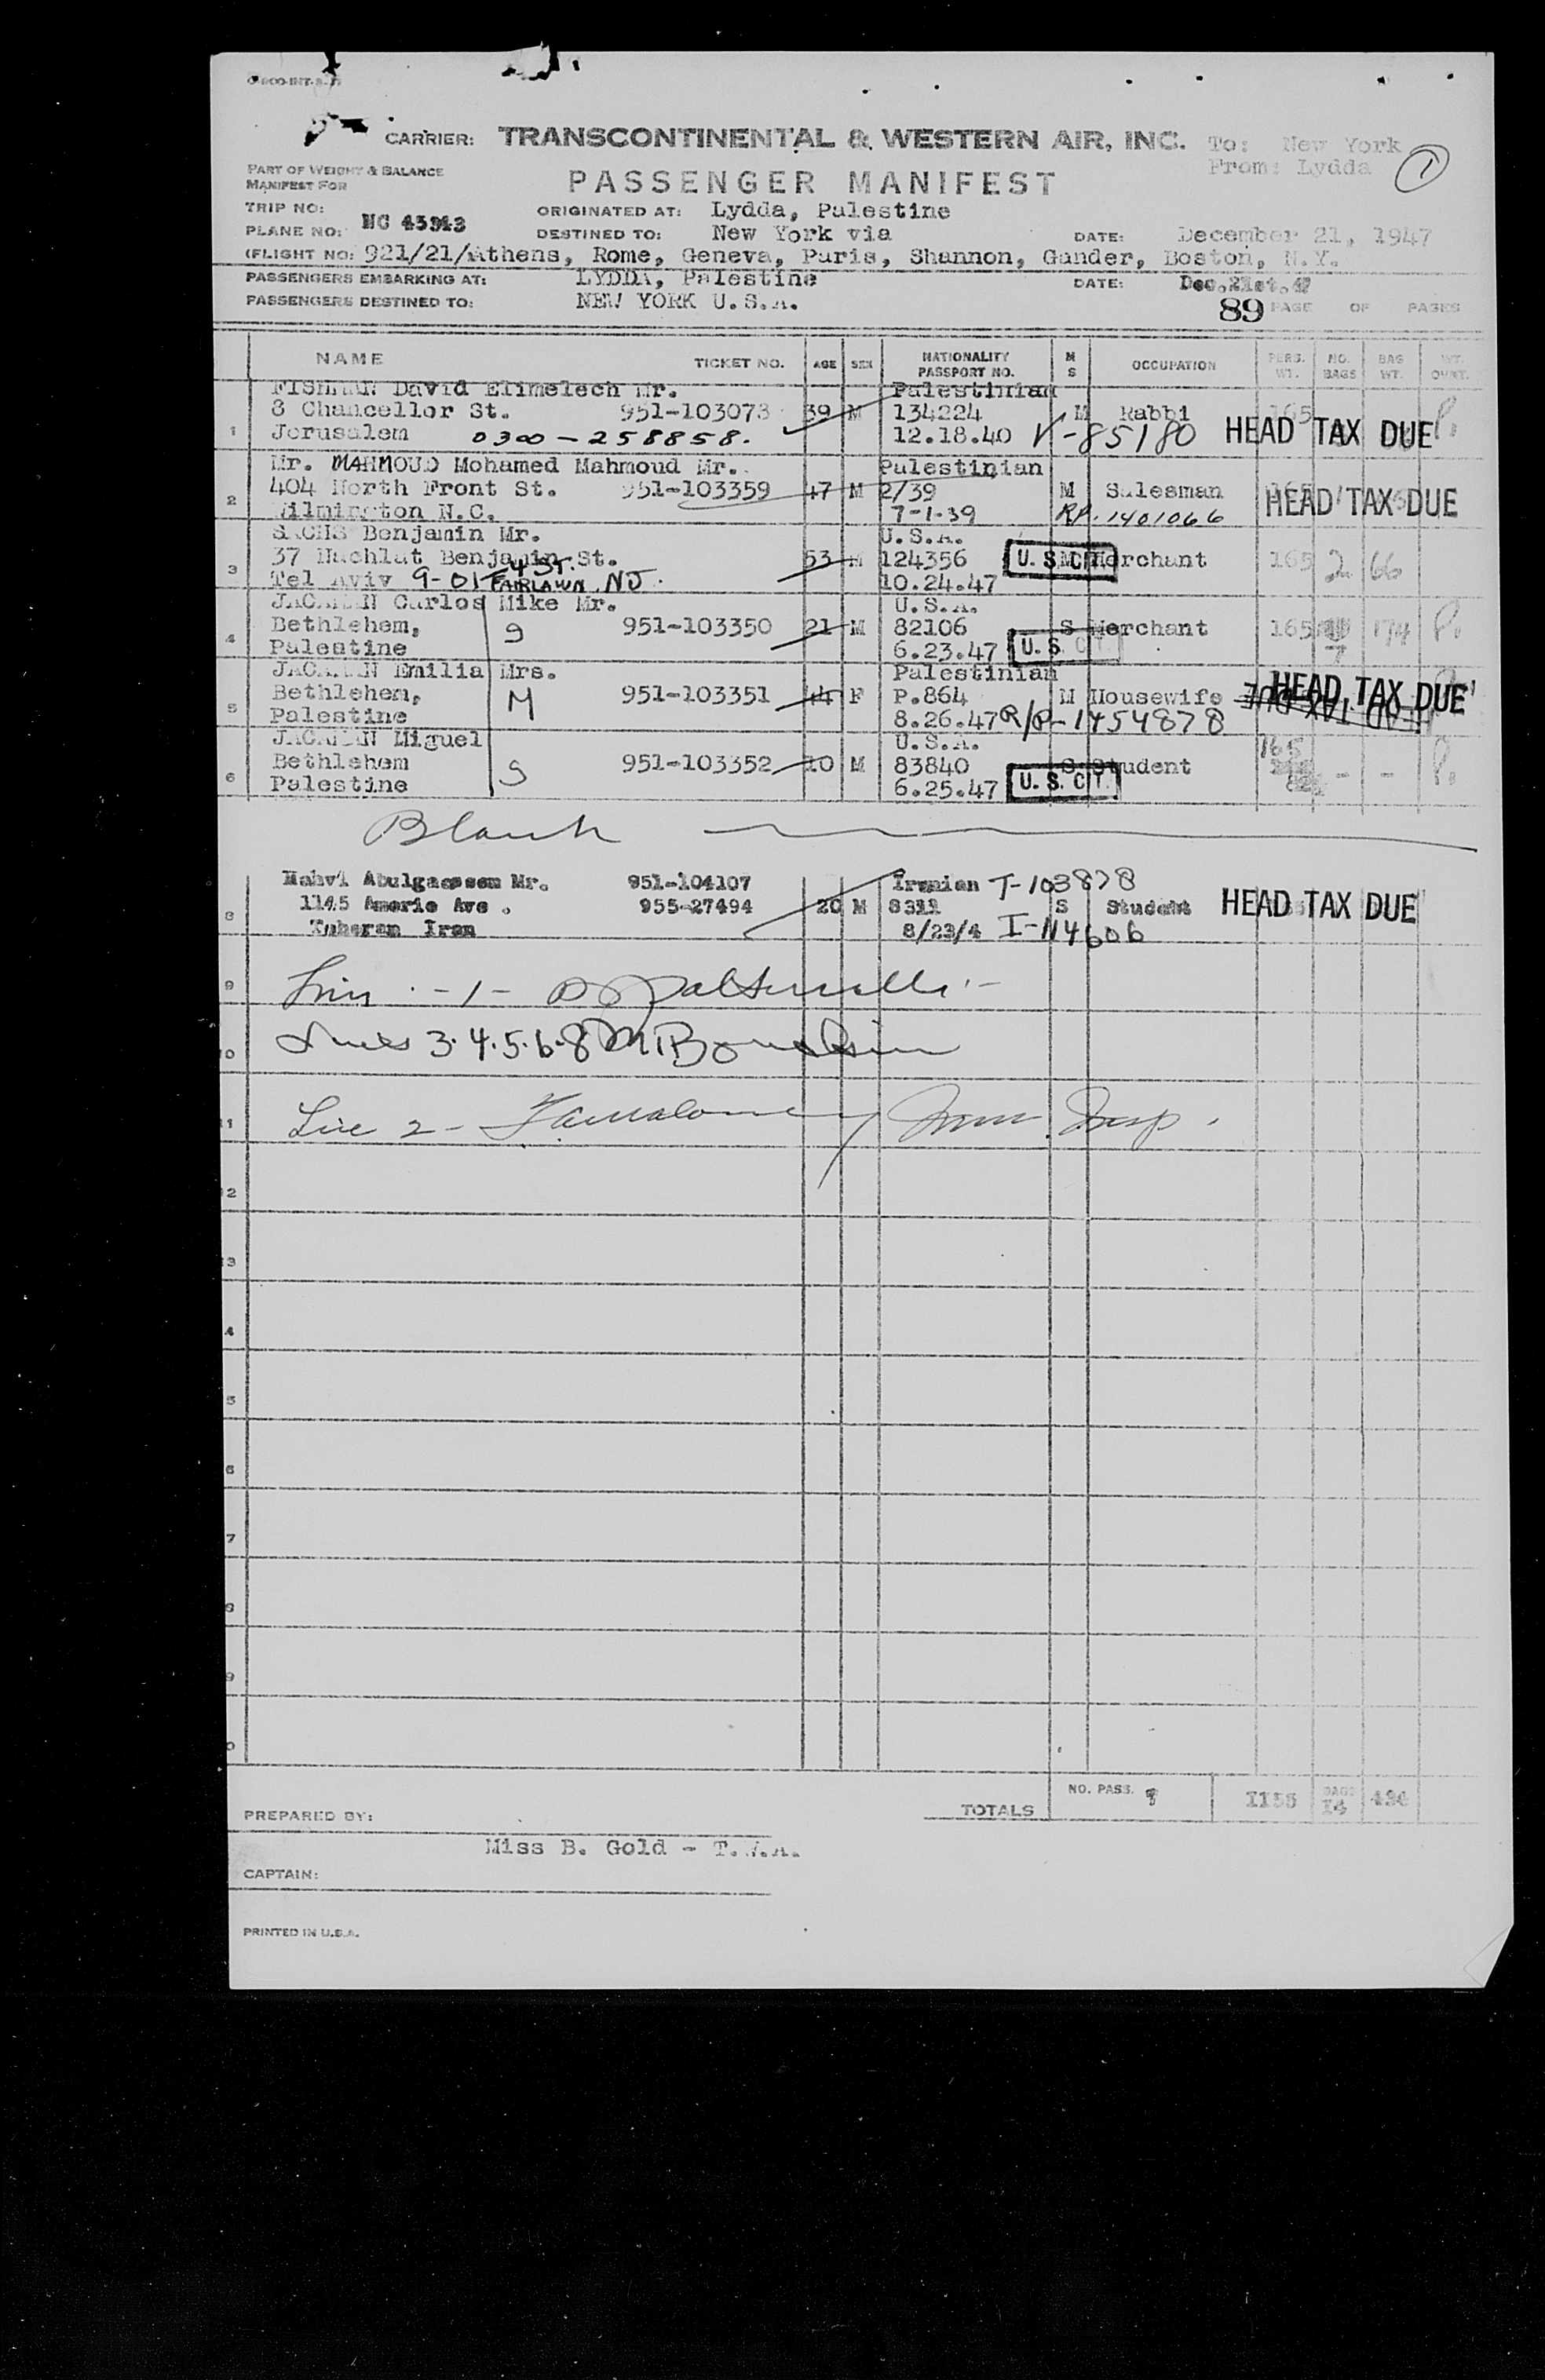 CARRIER: TRANSCONTINENTAL & WESTERN AIR, INC. To: New York
From: Lydda 1
PART OF WEIGHT & BALANCE
MANIFEST FOR
PASSENGER MANIFEST
TRIP NO:
PLANE NO: NC 45943
ORIGINATED AT: Lydda, Palestine
DESTINED TO: New York via DATE: December 21, 1947
(FLIGHT NO: 921/21/Athens, Rome, Geneva, Paris, Shannon, Gander, Boston, N.Y.
PASSENGERS EMBARKING AT: LYDDA, Palestine DATE: Dec.21st.47
PASSENGERS DESTINED TO: NEW YORK U.S.A. 89 PAGE OF PAGES
NAME TICKET NO. AGE SEX NATIONALITY PASSPORT NO. M S OCCUPATION PERS. WT. NO. BAGS BAG WT.
FISHMAN David Elimelech Mr. Palestinian
8 Chancellor St. 951-103073 39 M 134224 M Rabbi 165
1 Jerusalem 0300-258858. 12.18.40 V-85180 HEAD TAX DUE
Mr. MAHMOUD Mohamed Mahmoud Mr. Palestinian
2 404 North Front St. 951-103359 47 M 2/39 M Salesman HEAD TAX DUE
Wilmington N.C. 7-1-39 RP. 1401066
SACHS Benjamin Mr. U.S.A.
37 Nachlat Benjamin St. 53 M 124356 U.S.CIT. Merchant 165 2 66
3 Tel Aviv 9-01-4 ST. FAIRLAWN. NJ. 10.24.47
JACAMAN Carlos Mike Mr. U.S.A.
4 Bethlehem, S 951-103350 21 M 82106 S Merchant 165 174
Palestine 6.23.47 U.S.CIT. 7
JACAMAN Emilia Mrs. Palestinian
Bethlehem, M 951-103351 44 F P.864 M Housewife HEAD TAX DUE
5 Palestine 8.26.47 R/P-1454878 HEAD TAX DUE
JACAMAN Miguel U.S.A. 165
Bethlehem S 951-103352 10 M 83840 S Student - -
6 Palestine 6.25.47 U.S.CIT.
Blank
Mahvi Abulgaessem Mr. 951-104107 Iranian T-103878
8 1145 Amerie Ave . 955-27494 20 M 8311 S Student HEAD TAX DUE
Taheran Iran 8/23/4 I-N4606
9 Line -1-
10 Lines 3.4.5.6.8
11 Line 2- Imm. Insp.
12
13
14
15
16
17
18
19
20
TOTALS NO. PASS. 1155 BAGS 14
PREPARED BY:
Miss B. Gold - T.W.A.
CAPTAIN:
PRINTED IN U.S.A.